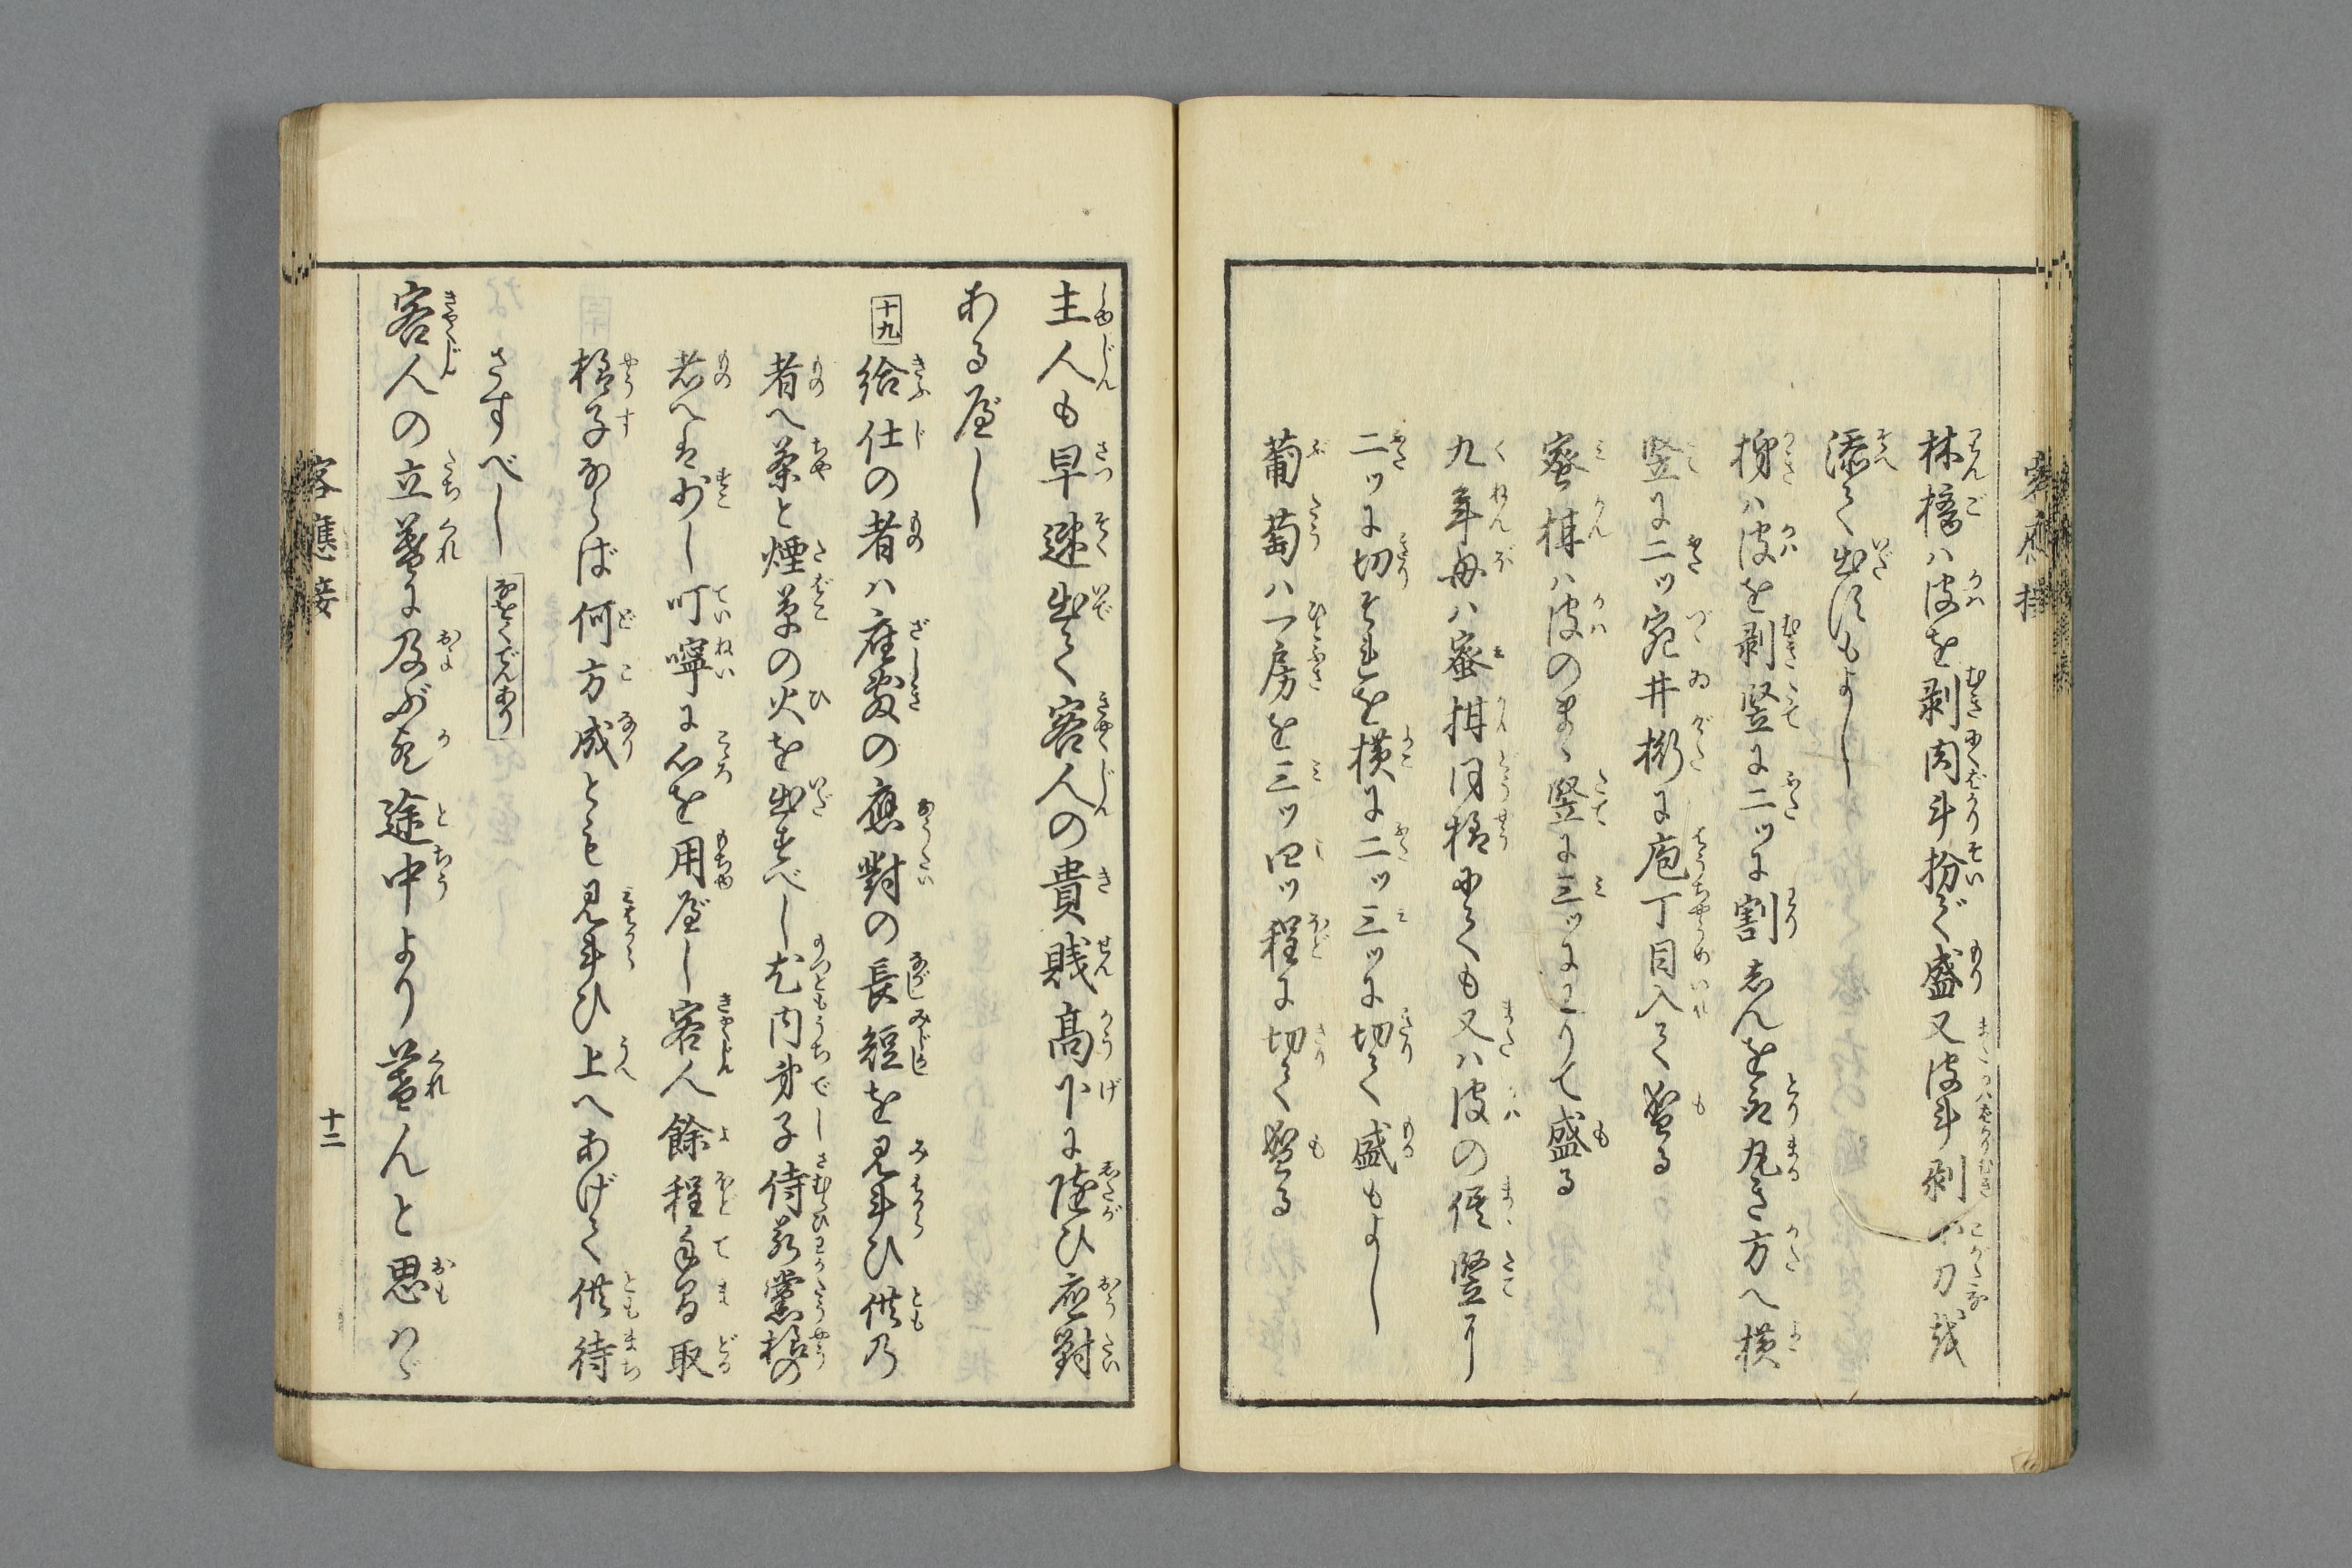 林檎ハ皮を剥肉斗扮て盛又皮斗剥小刀越
添て出すもよし
梛ハ皮を剥竪に二ツに割志んを取丸き方へ横
竪に二ツ宛井桁に庖丁目入て盛る
蜜柑ハ皮のまゝ竪に三ツにわりて盛る
九年母ハ蜜柑同様にても又ハ皮の侭竪に
二ツに切それを横に二ツ三ツに切て盛もよし
葡萄ハ一房を三ツ四ツ程に切て盛る
主人も早速出て客人の貴賎高下に随ひ應對
ある屋し
十九 給仕の者ハ座敷の應對の長短を見斗ひ供乃
者へ茶と煙草の火を出すべし尤内弟子侍若黨様の
者へは少し叮嚀に心を用屋し客人餘程手間取
様子ならば何方成とも見斗ひ上へあげて供待
さすべし なをくでんあり
客人の立暮に及ぶ歟途中より暮んと思ハゞ
客應接
十二